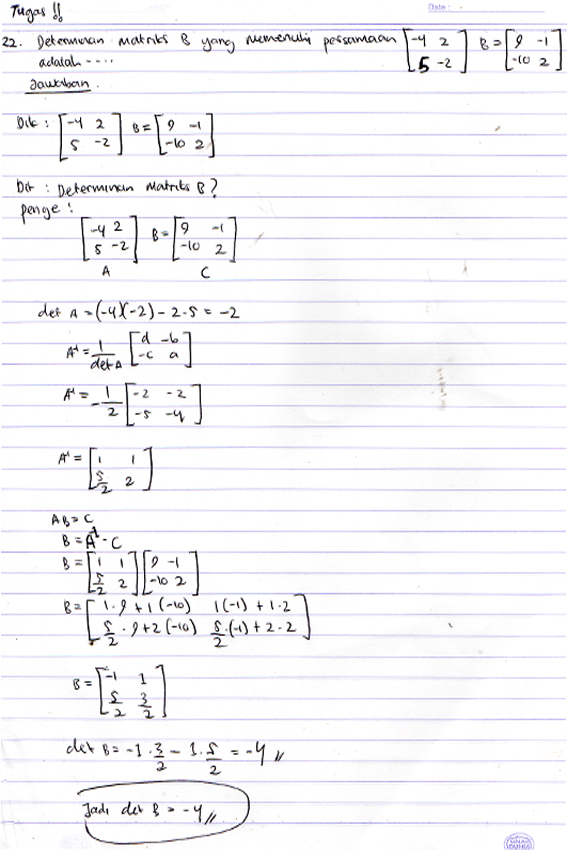 Tugas !!
Date :
22. Determinan matriks B yang memenuhi persamaan [-4 2; 5 -2] B = [9 -1; -10 2]
adalah ----
Jawaban.
Dik : [-4 2; 5 -2] B = [9 -1; -10 2]
Dit : Determinan Matriks B?
penye :
[-4 2; 5 -2] B = [9 -1; -10 2]
A C
det A = (-4)(-2) - 2.5 = -2
A⁻¹ = 1/det A [d -b; -c a]
A⁻¹ = -1/2 [-2 -2; -5 -4]
A⁻¹ = [1 1; 5/2 2]
AB = C
B = A⁻¹ · C
B = [1 1; 5/2 2] [9 -1; -10 2]
B = [1.9 + 1(-10) 1(-1) + 1.2; 5/2 . 9 + 2(-10) 5/2 . (-1) + 2.2]
B = [-1 1; 5/2 3/2]
det B = -1 . 3/2 - 1 . 5/2 = -4 //
Jadi det B = -4 //